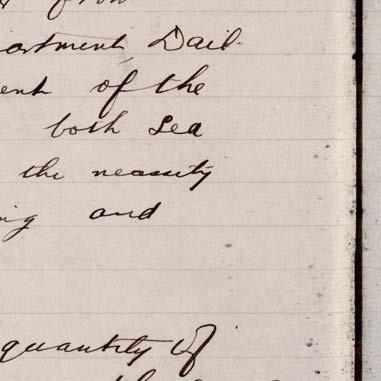 from
artment Dail
ent of the
both Sea
the necessity
ing and
quantity of